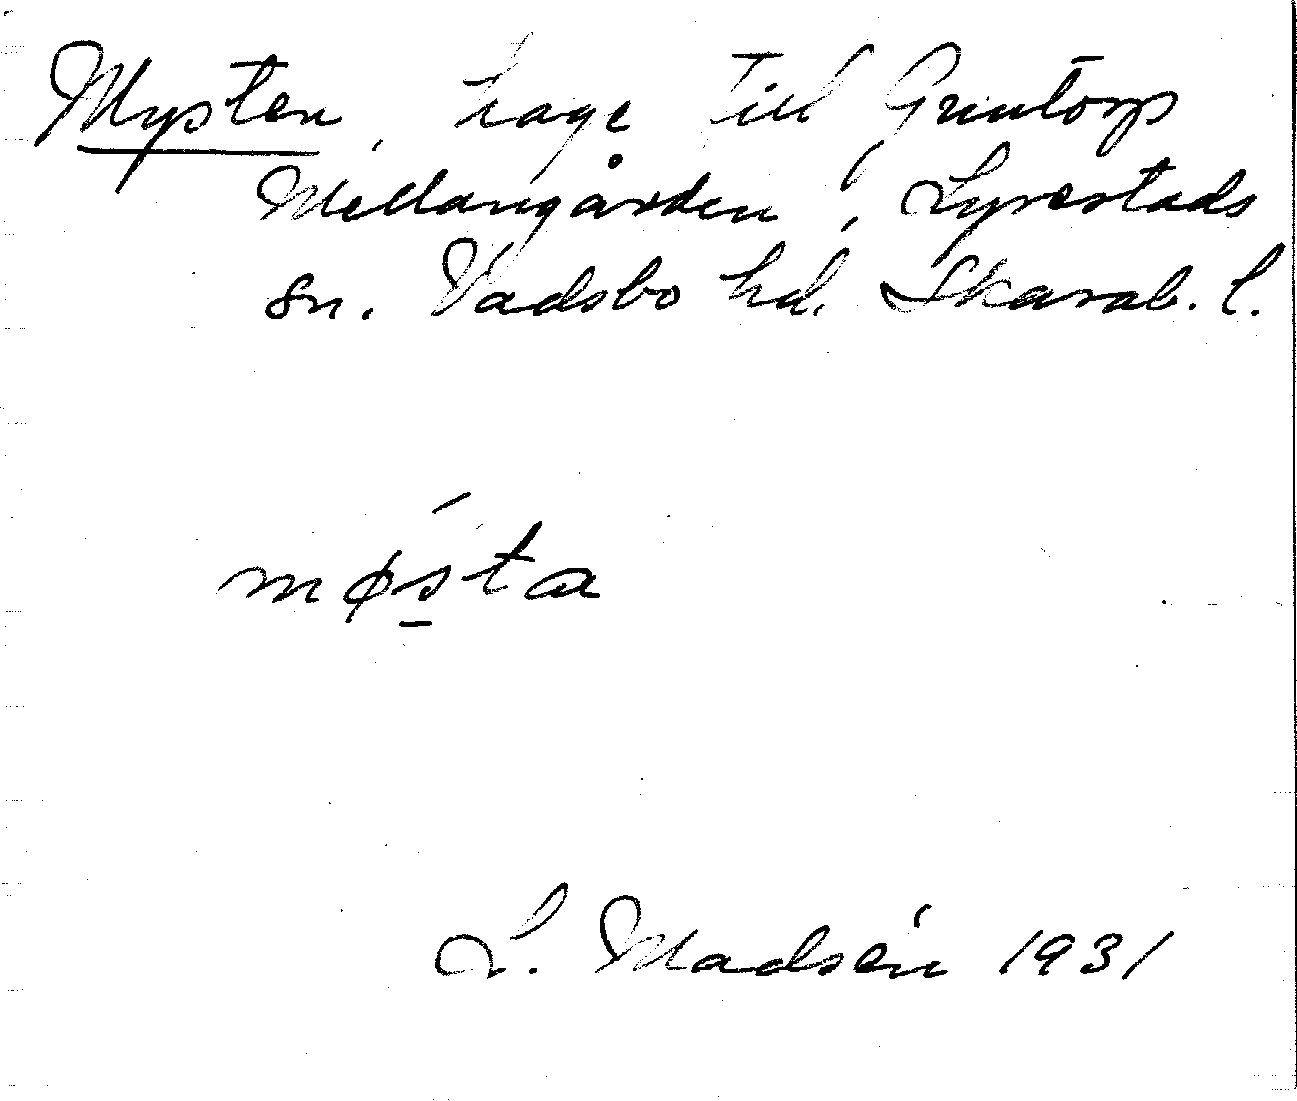 Mysten, hage till Gruntorp
Mellangården, Lyrestads
sn. Vadsbo hd. Skarab. l.
møsta
L. Madsén 1931